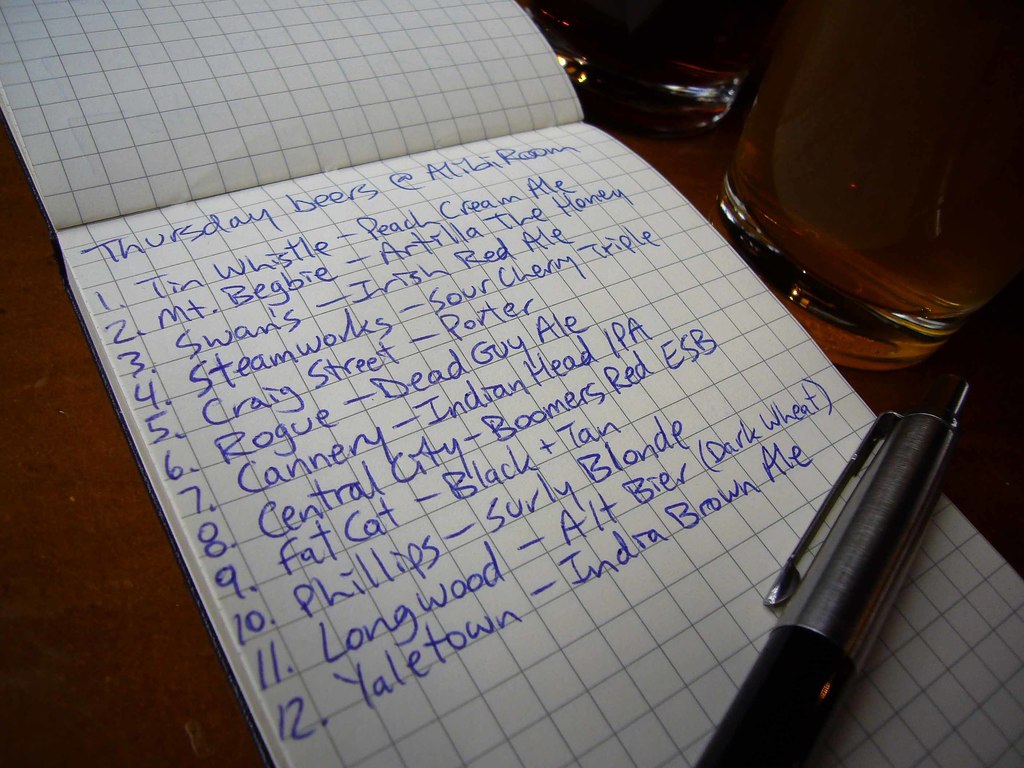 Thursday beers @ Alibi Room
1. Tin Whistle - Peach Cream Ale
2. Mt. Begbie - Attilla The Honey
3. Swan's - Irish Red Ale
4. Steamworks - Sour Cherry Triple
5. Craig Street - Porter
6. Rogue - Dead Guy Ale
7. Cannery - Indian Head IPA
8. Central City - Boomers Red ESB
9. Fat Cat - Black + Tan
10. Phillips - Surly Blonde
11. Longwood - Alt Bier (Dark Wheat)
12. Yaletown - India Brown Ale